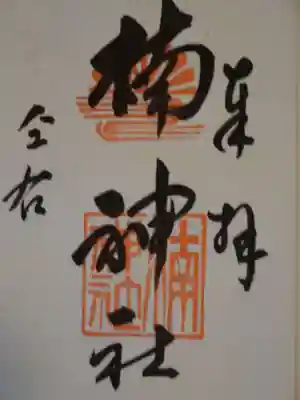 奉拝
楠神社
全右
楠神社